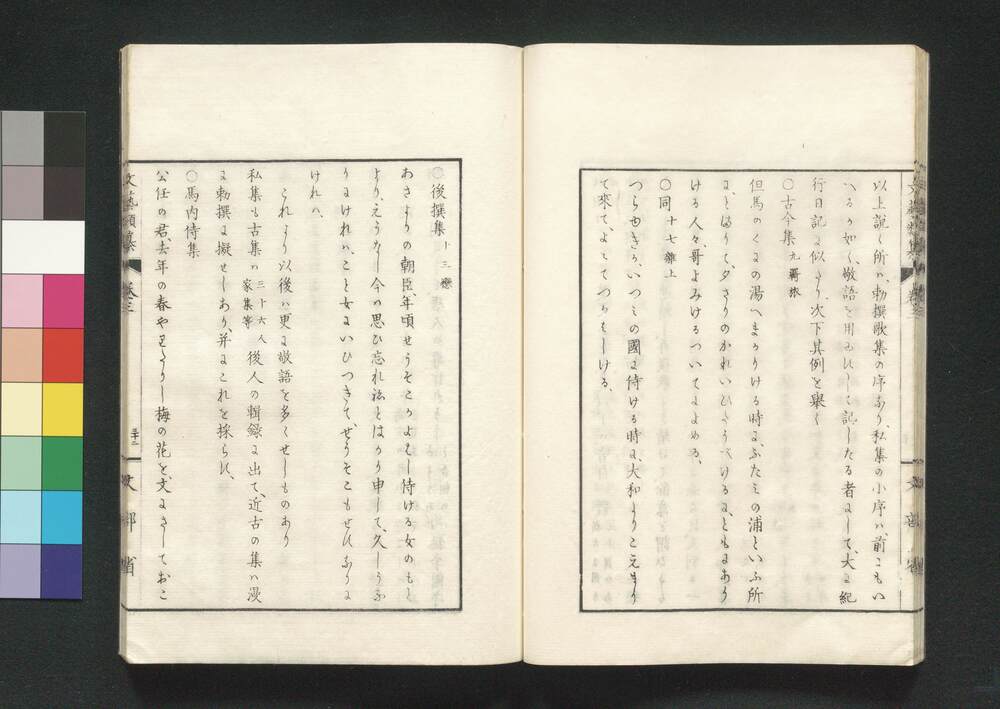 以上說く所ハ、勅撰歌集の序なり、私集の小序ハ、前にもい
へるが如く、敬語を用ゐずして記したる者にして、大に紀
行日記に似たり、次下其例を舉く
〇古今集 九羇旅
但馬のくにの湯へまかりける時に、ふたみの浦といふ所
に、とまりて、夕さりのかれいひたうべけるに、ともにあり
ける人々、哥よみけるついてによめる、
〇同 十七雜上
つらゆきか、いつみの國に侍ける時に、大和よりこえまう
て來て、よみてつかはしける、
〇後撰集 十三戀
あさよりの朝臣、年頃せうそこかよはし侍ける女のもと
より、えうなし今ハ思ひ忘れねとはかり申して、久しうな
りにけれハ、こと女にいひつきて、せうそこもせずなりに
けれハ、
これより以後ハ、更に敬語を多くせしものあり
私集も古集ハ 三十六人家集等 後人の輯錄に出て、近古の集ハ漫
に勅撰に擬せしあり、并にこれを採らず、
〇馬内侍集
公任の君、去年の春やまとうりし梅の花を、文にさしておこ
文藝類纂 卷三 三十二 文部省